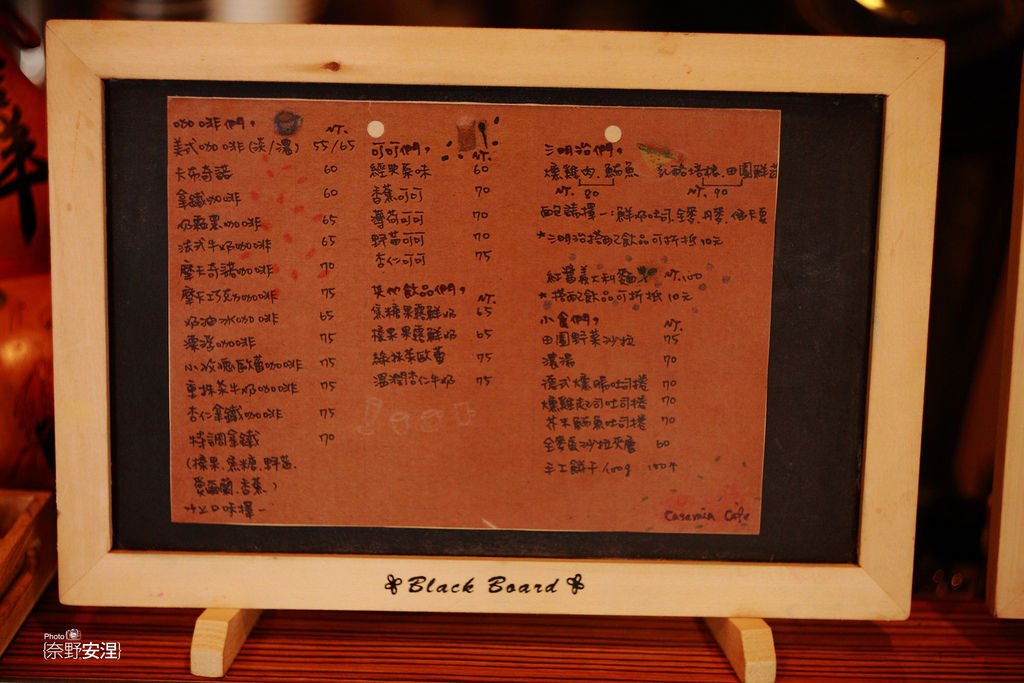 咖啡們，
NT.
美式咖啡(淡/濃) 55/65
卡布奇諾 60
拿鐵咖啡 60
奶霜黑咖啡 65
法式牛奶咖啡 65
摩卡奇諾咖啡 70
摩卡巧克力咖啡 75
奶油冰咖啡 65
漂浮咖啡 75
小玫瑰歐蕾咖啡 75
重抹茶牛奶咖啡 75
杏仁拿鐵咖啡 75
特調拿鐵 70
(榛果.焦糖.野莓.
愛爾蘭.香蕉)
以上口味擇一
可可們，
NT.
經典原味 60
香蕉可可 70
薄荷可可 70
野莓可可 70
杏仁可可 75
其他飲品們，
NT.
焦糖果露鮮奶 65
榛果果露鮮奶 65
綠抹茶歐蕾 75
溫潤杏仁牛奶 75
三明治們，
燻雞肉.鮪魚 乳酪烤捲.田園鮮蔬
NT. 80 NT. 90
麵包請擇一:鮮奶吐司.全麥.丹麥.佛卡夏
*三明治搭配飲品可折抵10元
紅醬義大利麵 NT.100
*搭配飲品可折抵10元
小食們，
NT.
田園野菜沙拉 75
濃湯 70
德式燻腸吐司捲 70
燻雞起司吐司捲 70
芥末鮪魚吐司捲 70
全麥蛋沙拉夾層 60
手工餅干/100g
Casamia Cafe
Black Board
Photo
{奈野安涅}